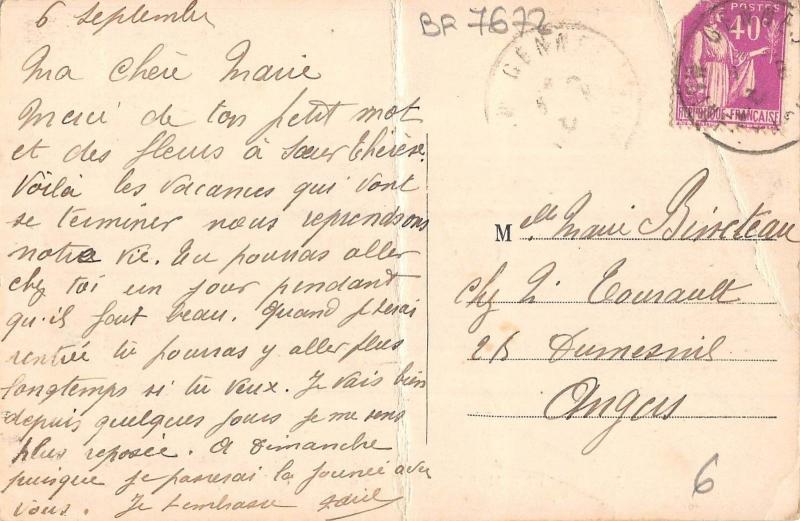 6 septembre
BR 7672
GENNES
POSTES
40c
REPUBLIQUE FRANCAISE
Ma chère Marie
Merci de ton petit mot
et des fleurs à Sœur Thérèse.
Voilà les vacances qui vont
se terminer nous reprendrons
notre vie. Tu pourras aller
chez toi un jour pendant
qu'il fait beau. Quand je serai
rentrée tu pourras y aller plus
longtemps si tu veux. Je vais bien
depuis quelques jours je me sens
plus reposée. A Dimanche
puisque je passerai la journée avec
vous. Je t'embrasse
Melle Marie Bisseteau
chez M. Tourault
Dumesnil
Angers
6